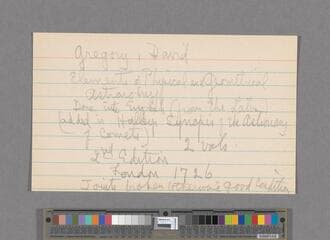 Gregory, David
Elements of Physical and Geometrical
Astronomy
Done into English (from the Latin)
(added is Halley Synopsis of the Astronomy
of Comets) 2 vols.
2nd Edition
London 1726
Joints broken otherwise good Condition